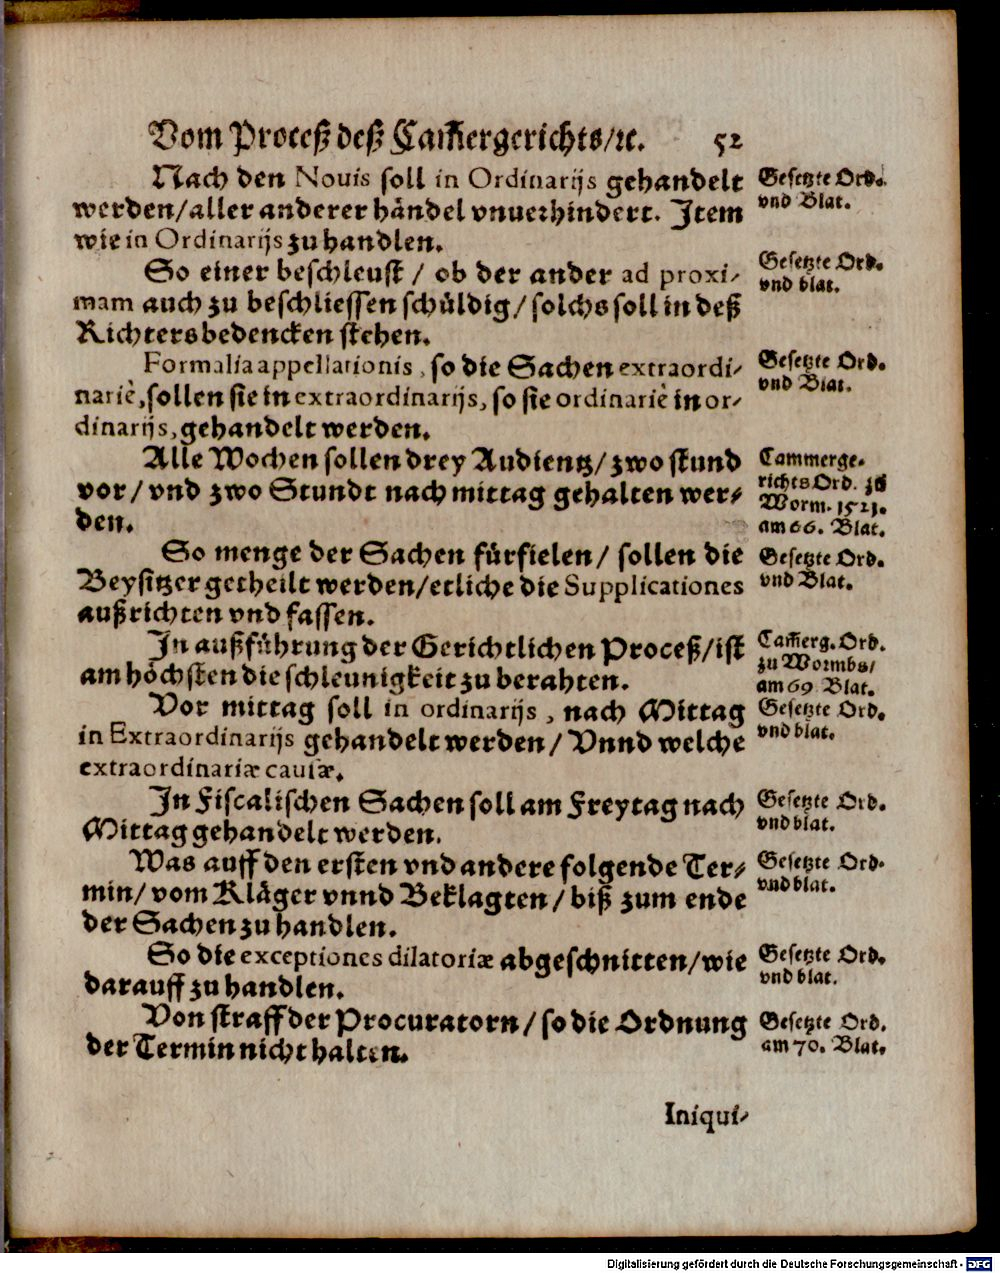 Vom Proceß deß Cam̃ergerichts/ꝛc. 52
Nach den Novis soll in Ordinarijs gehandelt
werden/aller anderer händel vnuerhindert. Item
wie in Ordinarijs zu handlen.
Gesetzte Ord.
vnd Blat.
So einer beschleust / ob der ander ad proxi-
mam auch zu beschliessen schüldig/ solchs soll in deß
Richters bedencken stehen.
Gesetzte Ord.
vnd blat.
Formalia appellationis, so die Sachen extraordi-
nariè, sollen sie in extraordinarijs, so sie ordinariè in or-
dinarijs, gehandelt werden.
Gesetzte Ord.
vnd Blat.
Alle Wochen sollen drey Audientz/ zwo stund
vor/ vnd zwo Stundt nach mittag gehalten wer-
den.
Cammerge-
richts Ord. zu
Worm. 1521.
am 66. Blat.
So menge der Sachen fürfielen/ sollen die
Beysitzer getheilt werden/etliche die Supplicationes
außrichten vnd fassen.
Gesetzte Ord.
vnd Blat.
In außführung der Gerichtlichen Proceß/ist
am höchsten die schleunigkeit zu berahten.
Cam̃erg. Ord.
zu Wormbs/
am 69 Blat.
Vor mittag soll in ordinarijs, nach Mittag
in Extraordinarijs gehandelt werden/ Vnnd welche
extraordinariæ causæ.
Gesetzte Ord.
vnd blat.
In Fiscalischen Sachen soll am Freytag nach
Mittag gehandelt werden.
Gesetzte Ord.
vnd blat.
Was auff den ersten vnd andere folgende Ter-
min/ vom Kläger vnnd Beklagten / biß zum ende
der Sachen zu handlen.
Gesetzte Ord.
vnd blat.
So die exceptiones dilatoriæ abgeschnitten/wie
darauff zu handlen.
Gesetzte Ord.
vnd blat.
Von straff der Procuratorn/ so die Ordnung
der Termin nicht halten.
Gesetzte Ord.
am 70. Blat.
Iniqui-
Digitalisierung gefördert durch die Deutsche Forschungsgemeinschaft - DFG